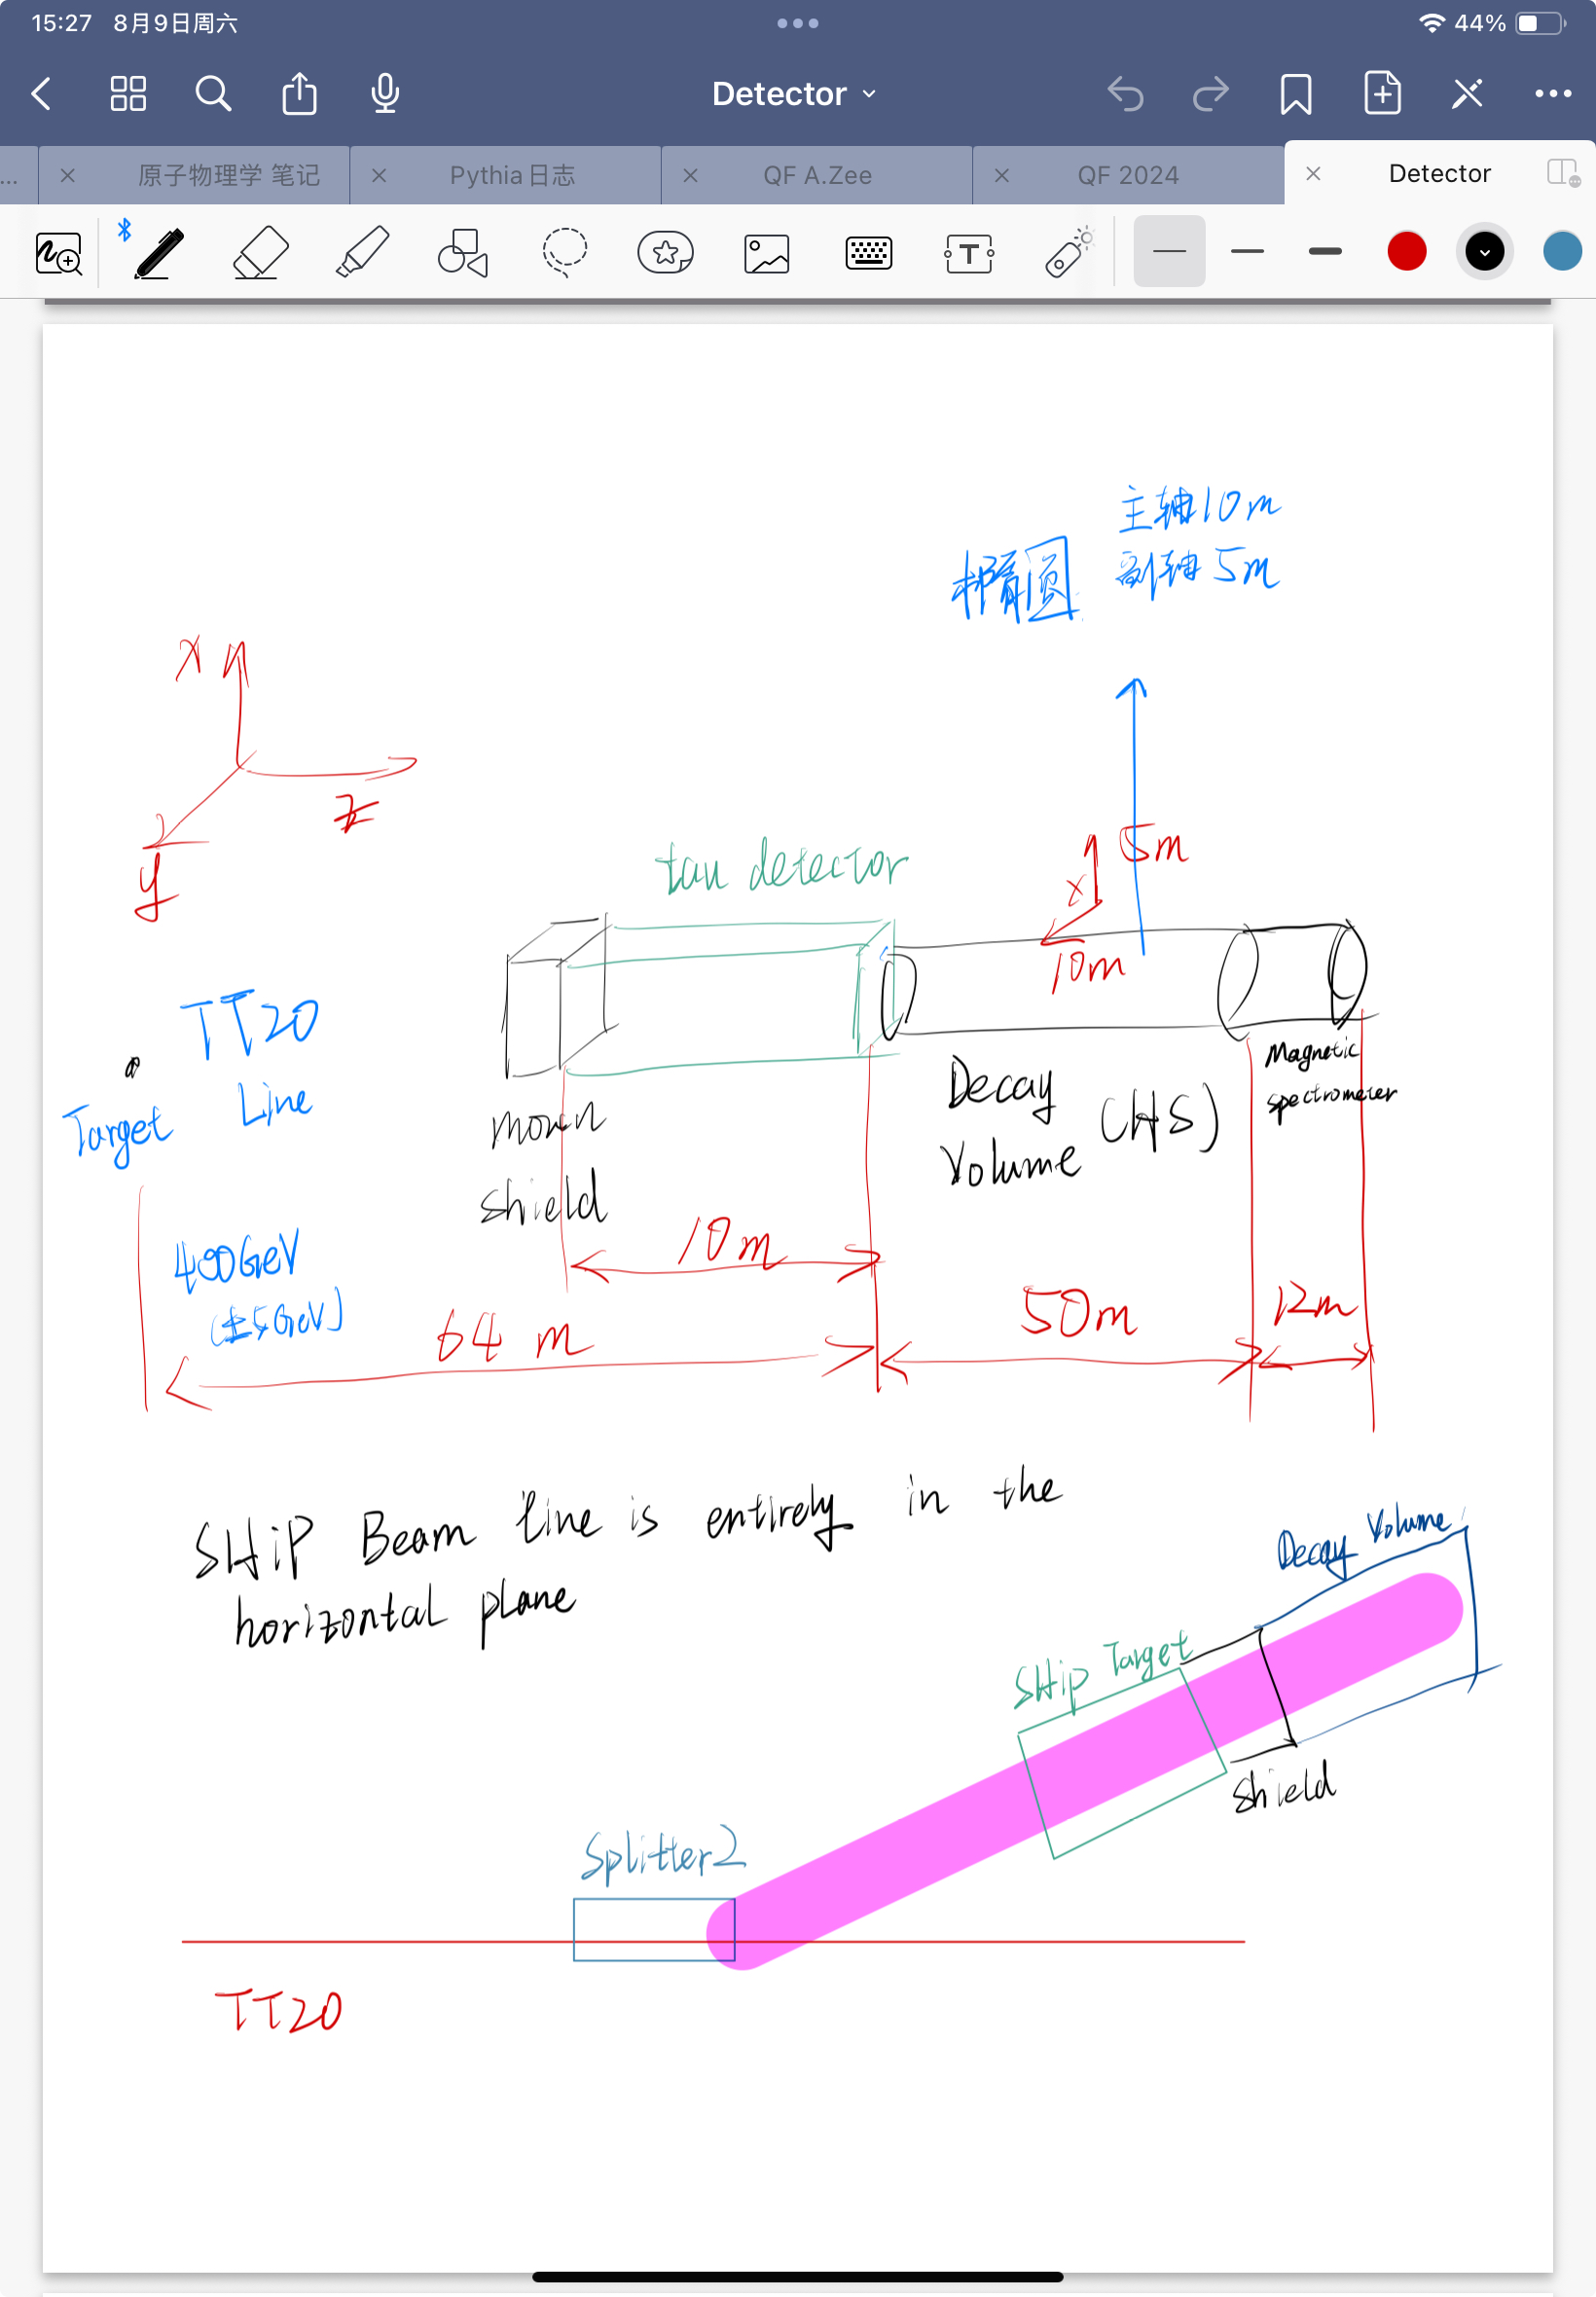 15:27 8月9日周六
44%
Detector
...
原子物理学 笔记
Pythia日志
QF A.Zee
QF 2024
Detector
T
主轴10m
椭圆
副轴5m
x
z
y
tau detector
5m
x
10m
TT20
Line
Target
Magnetic
spectrometer
Decay
Volume
(HS)
muon
shield
10m
400GeV
(±5GeV)
64 m
50m
12m
SHiP Beam line is entirely in the
horizontal plane
Decay Volume
SHiP Target
Shield
Splitter2
TT20